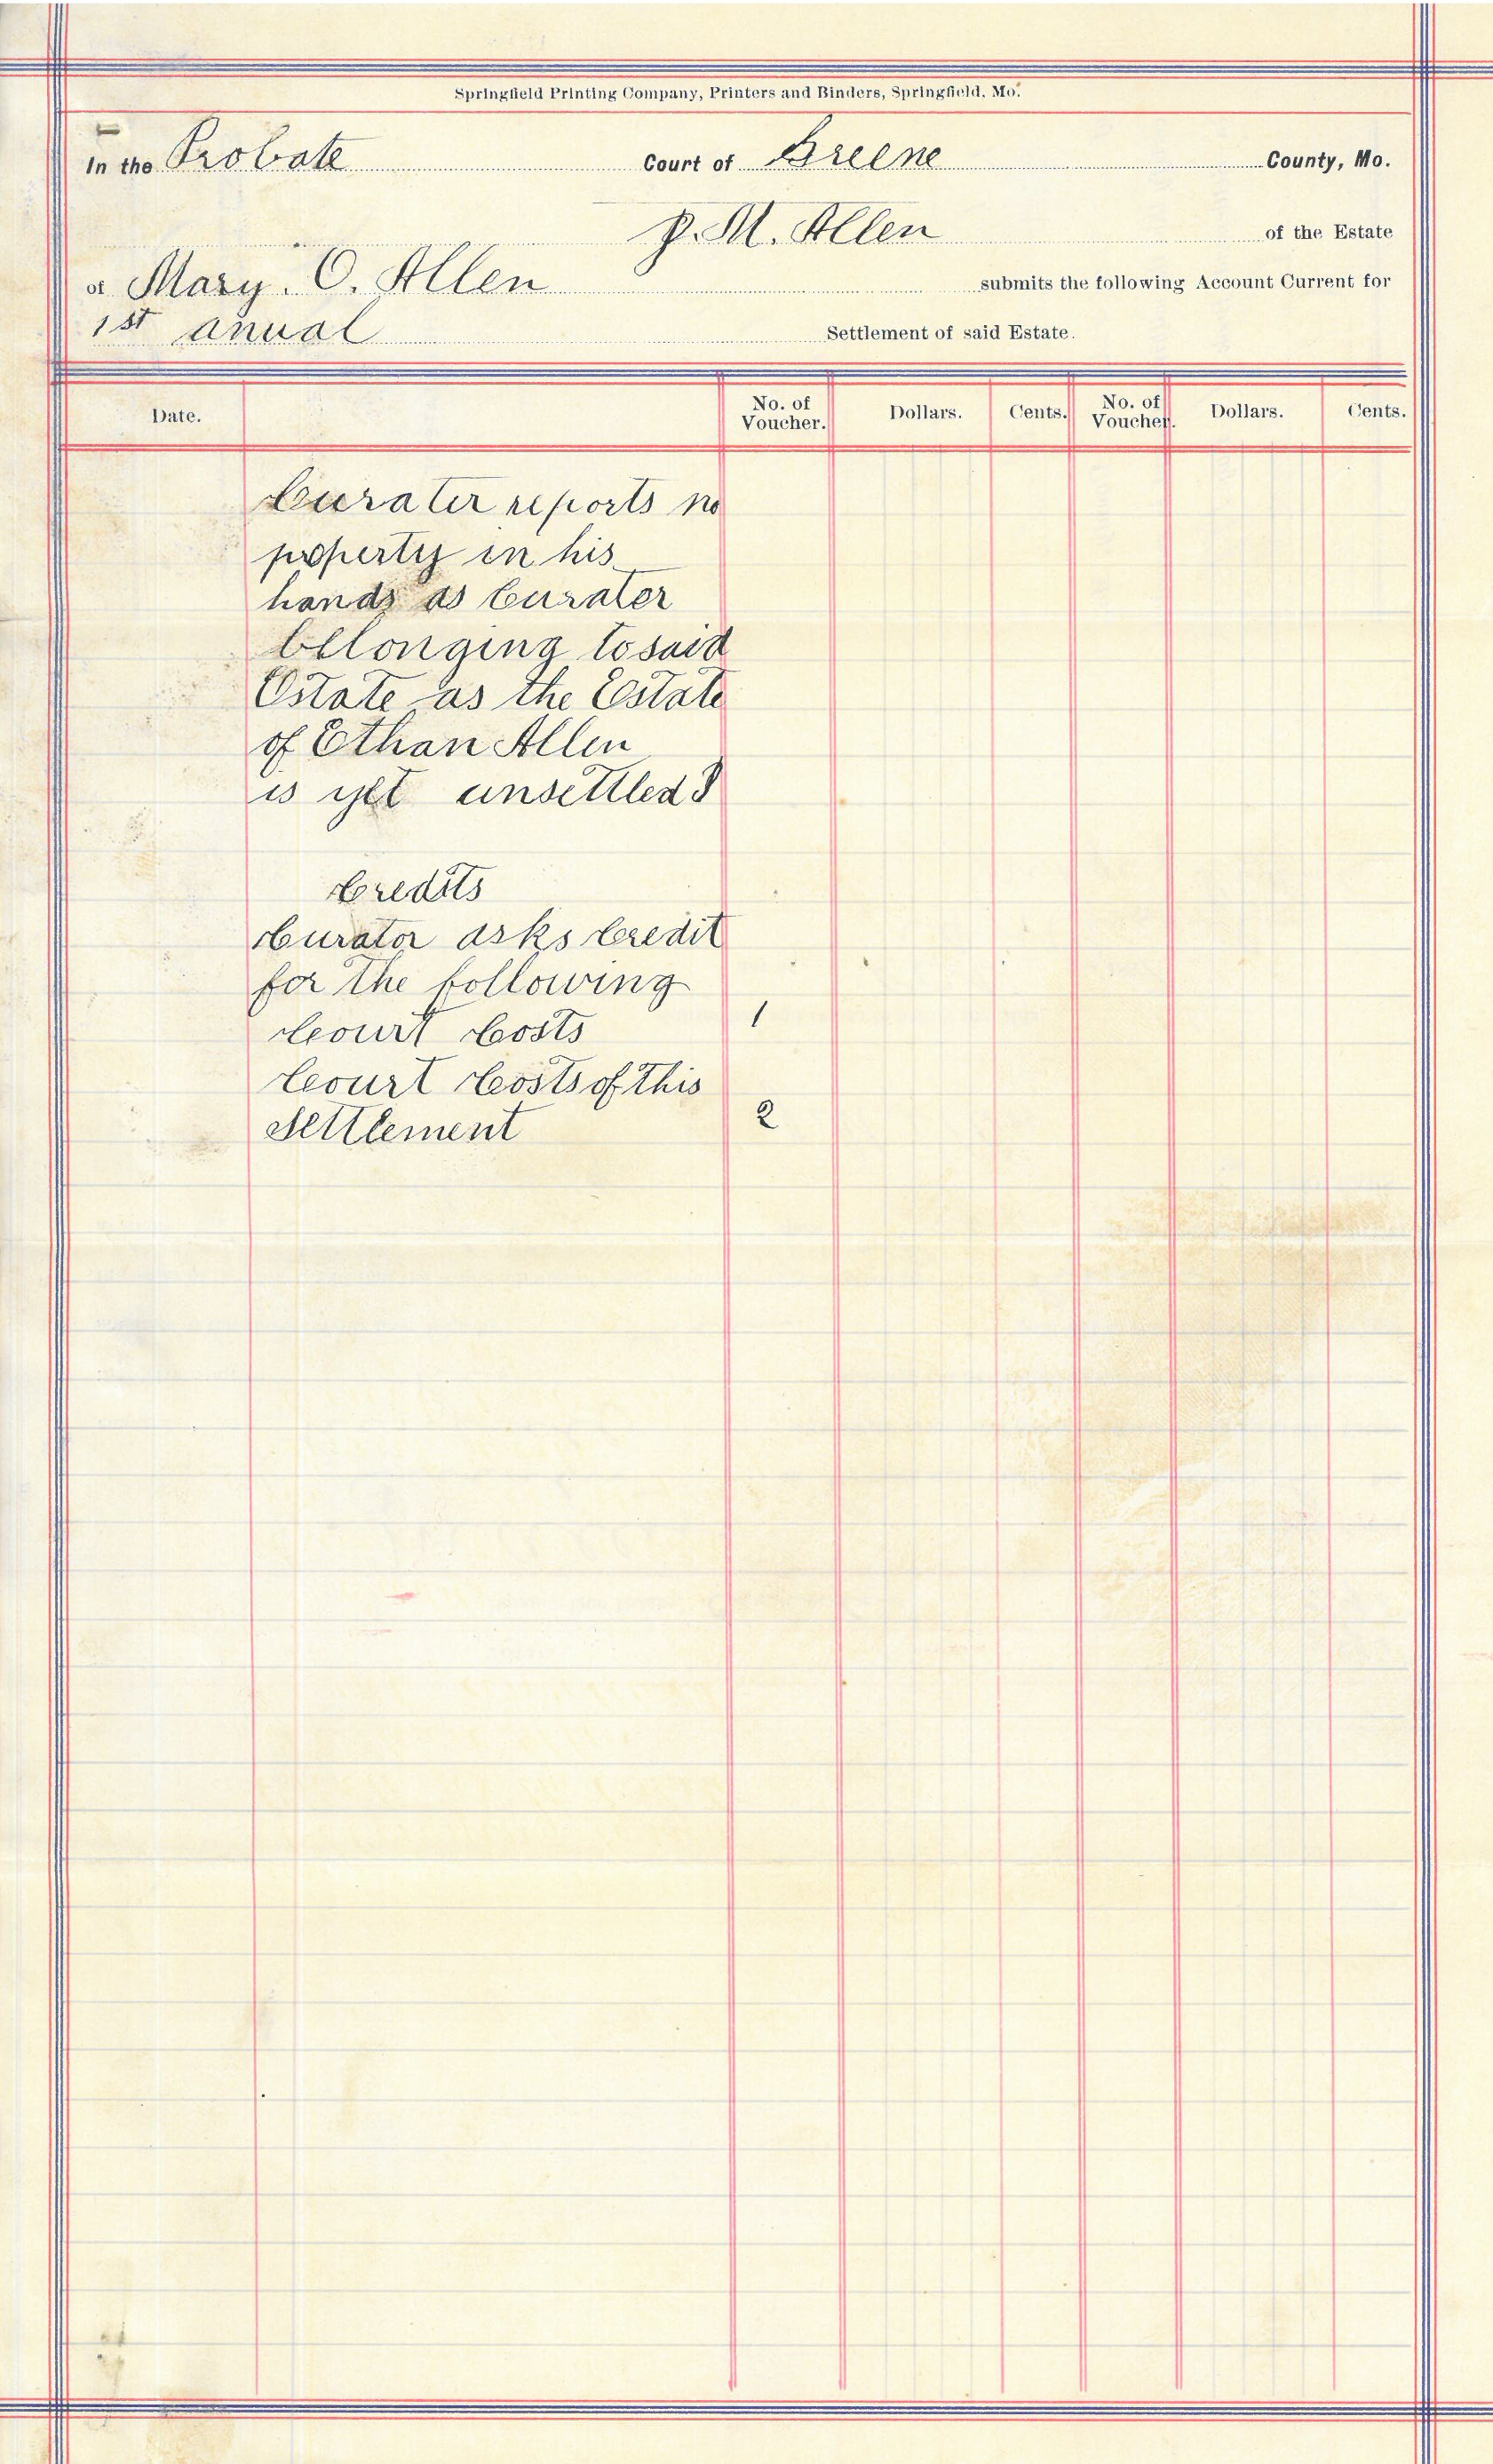 Springfield Printing Company, Printers and Binders, Springfield, Mo.
In the Probate Court of Greene County, Mo.
P. M. Allen of the Estate
of Mary. C. Allen submits the following Account Current for
1st anual Settlement of said Estate.
Date. No. of Voucher. Dollars. Cents. No. of Voucher. Dollars. Cents.
Curater reports no
property in his
hands as Curater
belonging to said
Estate as the Estate
of Ethan Allen
is yet unsettled
Credits
Curator asks Credit
for the following
Court Costs 1
Court Costs of this
Settlement 2